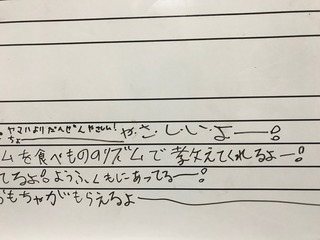 ヤマハよりだんぜんやさしい!
ちょー やさしいよー!
ムを食べもののリズムで教えてくれるよー!
てるよ!ようふくもにあってるー!
おもちゃがもらえるよー